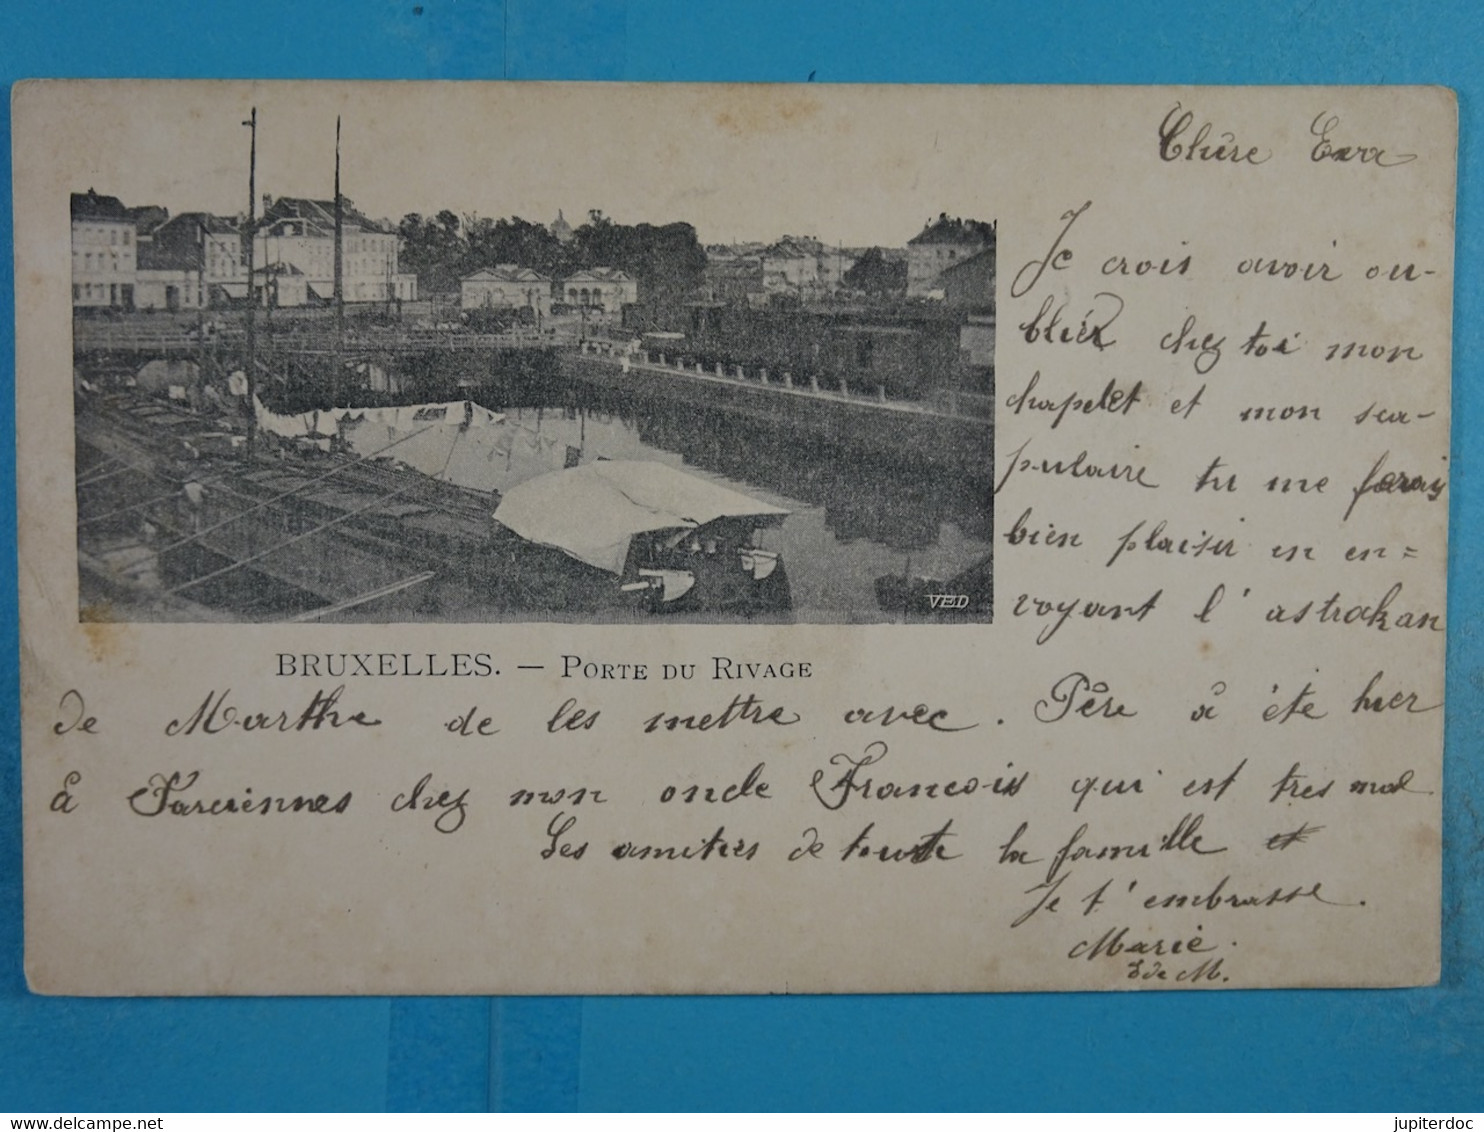 Chère
Je crois avoir ou-
bliér chez toi mon
chapelet et mon sca-
pulaire tu me ferais
bien plaisir en en=
voyant l'astrakan
VED
BRUXELLES. — PORTE DU RIVAGE
de Marthe de les mettre avec. Père à été hier
à Farciennes chez mon oncle Francois qui est tres mal
Les amitiés de toute la famille et
Je t'embrasse.
Marie.
de M.
jupiterdoc